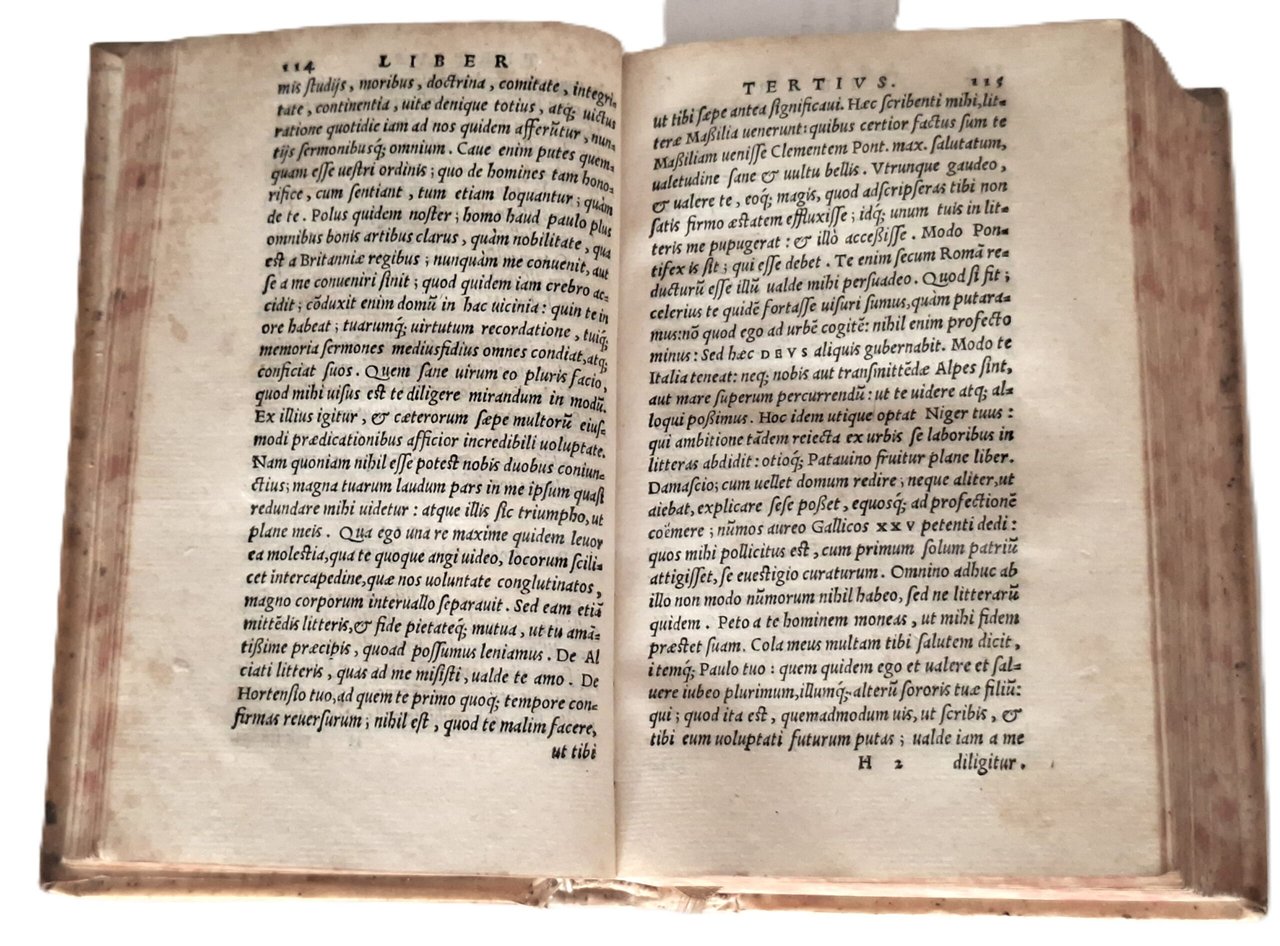 114 LIBER
mis ſtudijs, moribus, doctrina, comitate, integri-
tate, continentia, uitæ denique totius, atq; uictus
ratione quotidie iam ad nos quidem afferūtur, nun-
tijs ſermonibusq; omnium. Caue enim putes quem-
quam eſſe ueſtri ordinis; quo de homines tam hono-
rifice, cum ſentiant, tum etiam loquantur; quàm
de te. Polus quidem noſter; homo haud paulo plus
omnibus bonis artibus clarus, quàm nobilitate, qua
eſt a Britanniæ regibus; nunquàm me conuenit, aut
ſe a me conueniri ſinit; quod quidem iam crebro ac-
cidit; cōduxit enim domū in hac uicinia: quin te in
ore habeat; tuarumq; uirtutum recordatione, tuiq;
memoria ſermones mediusfidius omnes condiat, atq;
conficiat ſuos. Quem ſane uirum eo pluris facio,
quod mihi uiſus eſt te diligere mirandum in modū.
Ex illius igitur, & cæterorum ſæpe multorū eiuſ-
modi prædicationibus afficior incredibili uoluptate.
Nam quoniam nihil eſſe poteſt nobis duobus coniun-
ctius; magna tuarum laudum pars in me ipſum quaſi
redundare mihi uidetur: atque illis ſic triumpho, ut
plane meis. Qua ego una re maxime quidem leuor
ea moleſtia, qua te quoque angi uideo, locorum ſcili-
cet intercapedine, quæ nos uoluntate conglutinatos,
magno corporum interuallo ſeparauit. Sed eam etiā
mittēdis litteris, & fide pietateq; mutua, ut tu amā-
tißime præcipis, quoad poſſumus leniamus. De Al
ciati litteris, quas ad me miſiſti, ualde te amo. De
Hortenſio tuo, ad quem te primo quoq; tempore con-
firmas reuerſurum; nihil eſt, quod te malim facere,
ut tibi
TERTIVS. 115
ut tibi ſæpe antea ſignificaui. Hæc ſcribenti mihi, lit-
teræ Maßilia uenerunt: quibus certior factus ſum te
Maßiliam ueniſſe Clementem Pont. max. ſalutatum,
ualetudine ſane & uultu bellis. Vtrunque gaudeo,
& ualere te, eoq; magis, quod adſcripſeras tibi non
ſatis firmo æſtatem effluxiſſe; idq; unum tuis in lit-
teris me pupugerat: & illò acceßiſſe. Modo Pon-
tifex is ſit; qui eſſe debet. Te enim ſecum Romā re-
ducturū eſſe illū ualde mihi perſuadeo. Quod ſi fit;
celerius te quidē fortaſſe uiſuri ſumus, quàm putara-
mus: nō quod ego ad urbē cogitē: nihil enim profecto
minus: Sed hæc DEVS aliquis gubernabit. Modo te
Italia teneat: neq; nobis aut transmittēdæ Alpes ſint,
aut mare ſuperum percurrendū: ut te uidere atq; al-
loqui poßimus. Hoc idem utique optat Niger tuus:
qui ambitione tādem reiecta ex urbis ſe laboribus in
litteras abdidit: otioq; Patauino fruitur plane liber.
Damaſcio; cum uellet domum redire; neque aliter, ut
aiebat, explicare ſeſe poßet, equosq; ad profectionē
coëmere; nūmos aureo Gallicos XXV petenti dedi:
quos mihi pollicitus eſt, cum primum ſolum patriū
attigiſſet, ſe eueſtigio curaturum. Omnino adhuc ab
illo non modo nūmorum nihil habeo, ſed ne litterarū
quidem. Peto a te hominem moneas, ut mihi fidem
præſtet ſuam. Cola meus multam tibi ſalutem dicit,
itemq; Paulo tuo: quem quidem ego et ualere et ſal-
uere iubeo plurimum, illumq; alterū ſororis tuæ filiū:
qui; quod ita eſt, quemadmodum uis, ut ſcribis, &
tibi eum uoluptati futurum putas; ualde iam a me
H 2 diligitur.